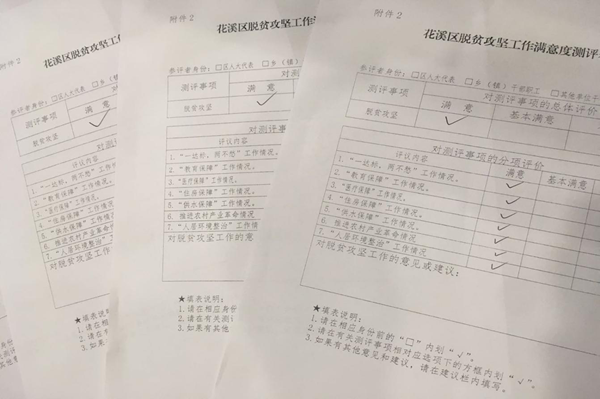 附件2
花溪区脱贫攻坚工作
参评者身份：□区人大代表
测评事项
满意
脱贫攻坚
✓
评议内容
1."一达标，两不愁"工作情况。
2."教育保障"工作情况。
3."医疗保障"工作情况。
4."住房保障"工作情况。
5."供水保障"工作情况。
6.推进农村产业革命情况
7."人居环境整治"工作情
对脱贫攻坚工作的意
★填表说明：
1.请在相应身份
2.请在有关测
3.如果有
附件2
花溪区脱贫攻坚工作满
参评者身份：□区人大代表 □乡（镇）
对测
测评事项
满意
脱贫攻坚
✓
对测评事
评议内容
1."一达标，两不愁"工作情况。
2."教育保障"工作情况。
3."医疗保障"工作情况。
4."住房保障"工作情况。
5."供水保障"工作情况。
6.推进农村产业革命情况
7."人居环境整治"工作情
对脱贫攻坚工作的意
★填表说明：
1.请在相应身份
2.请在有关测
3.如果有其他
附件2
花溪区脱贫攻坚工作满意度测评
参评者身份：□区人大代表 □乡（镇）干部职工 □其他单位干
对测评事项的总体评价
测评事项
满意
基本满意
脱贫攻坚
✓
对测评事项的分项评价
评议内容
满意
基本满意
1."一达标，两不愁"工作情况。
✓
2."教育保障"工作情况。
✓
3."医疗保障"工作情况。
✓
4."住房保障"工作情况。
✓
5."供水保障"工作情况。
✓
6.推进农村产业革命情况
✓
7."人居环境整治"工作情况
✓
对脱贫攻坚工作的意见或建议：
★填表说明：
1.请在相应身份前的"□"内划"✓"。
2.请在有关测评事项相对应选项下的方框内划"✓"。
3.如果有其他意见和建议，请在建议栏内填写。